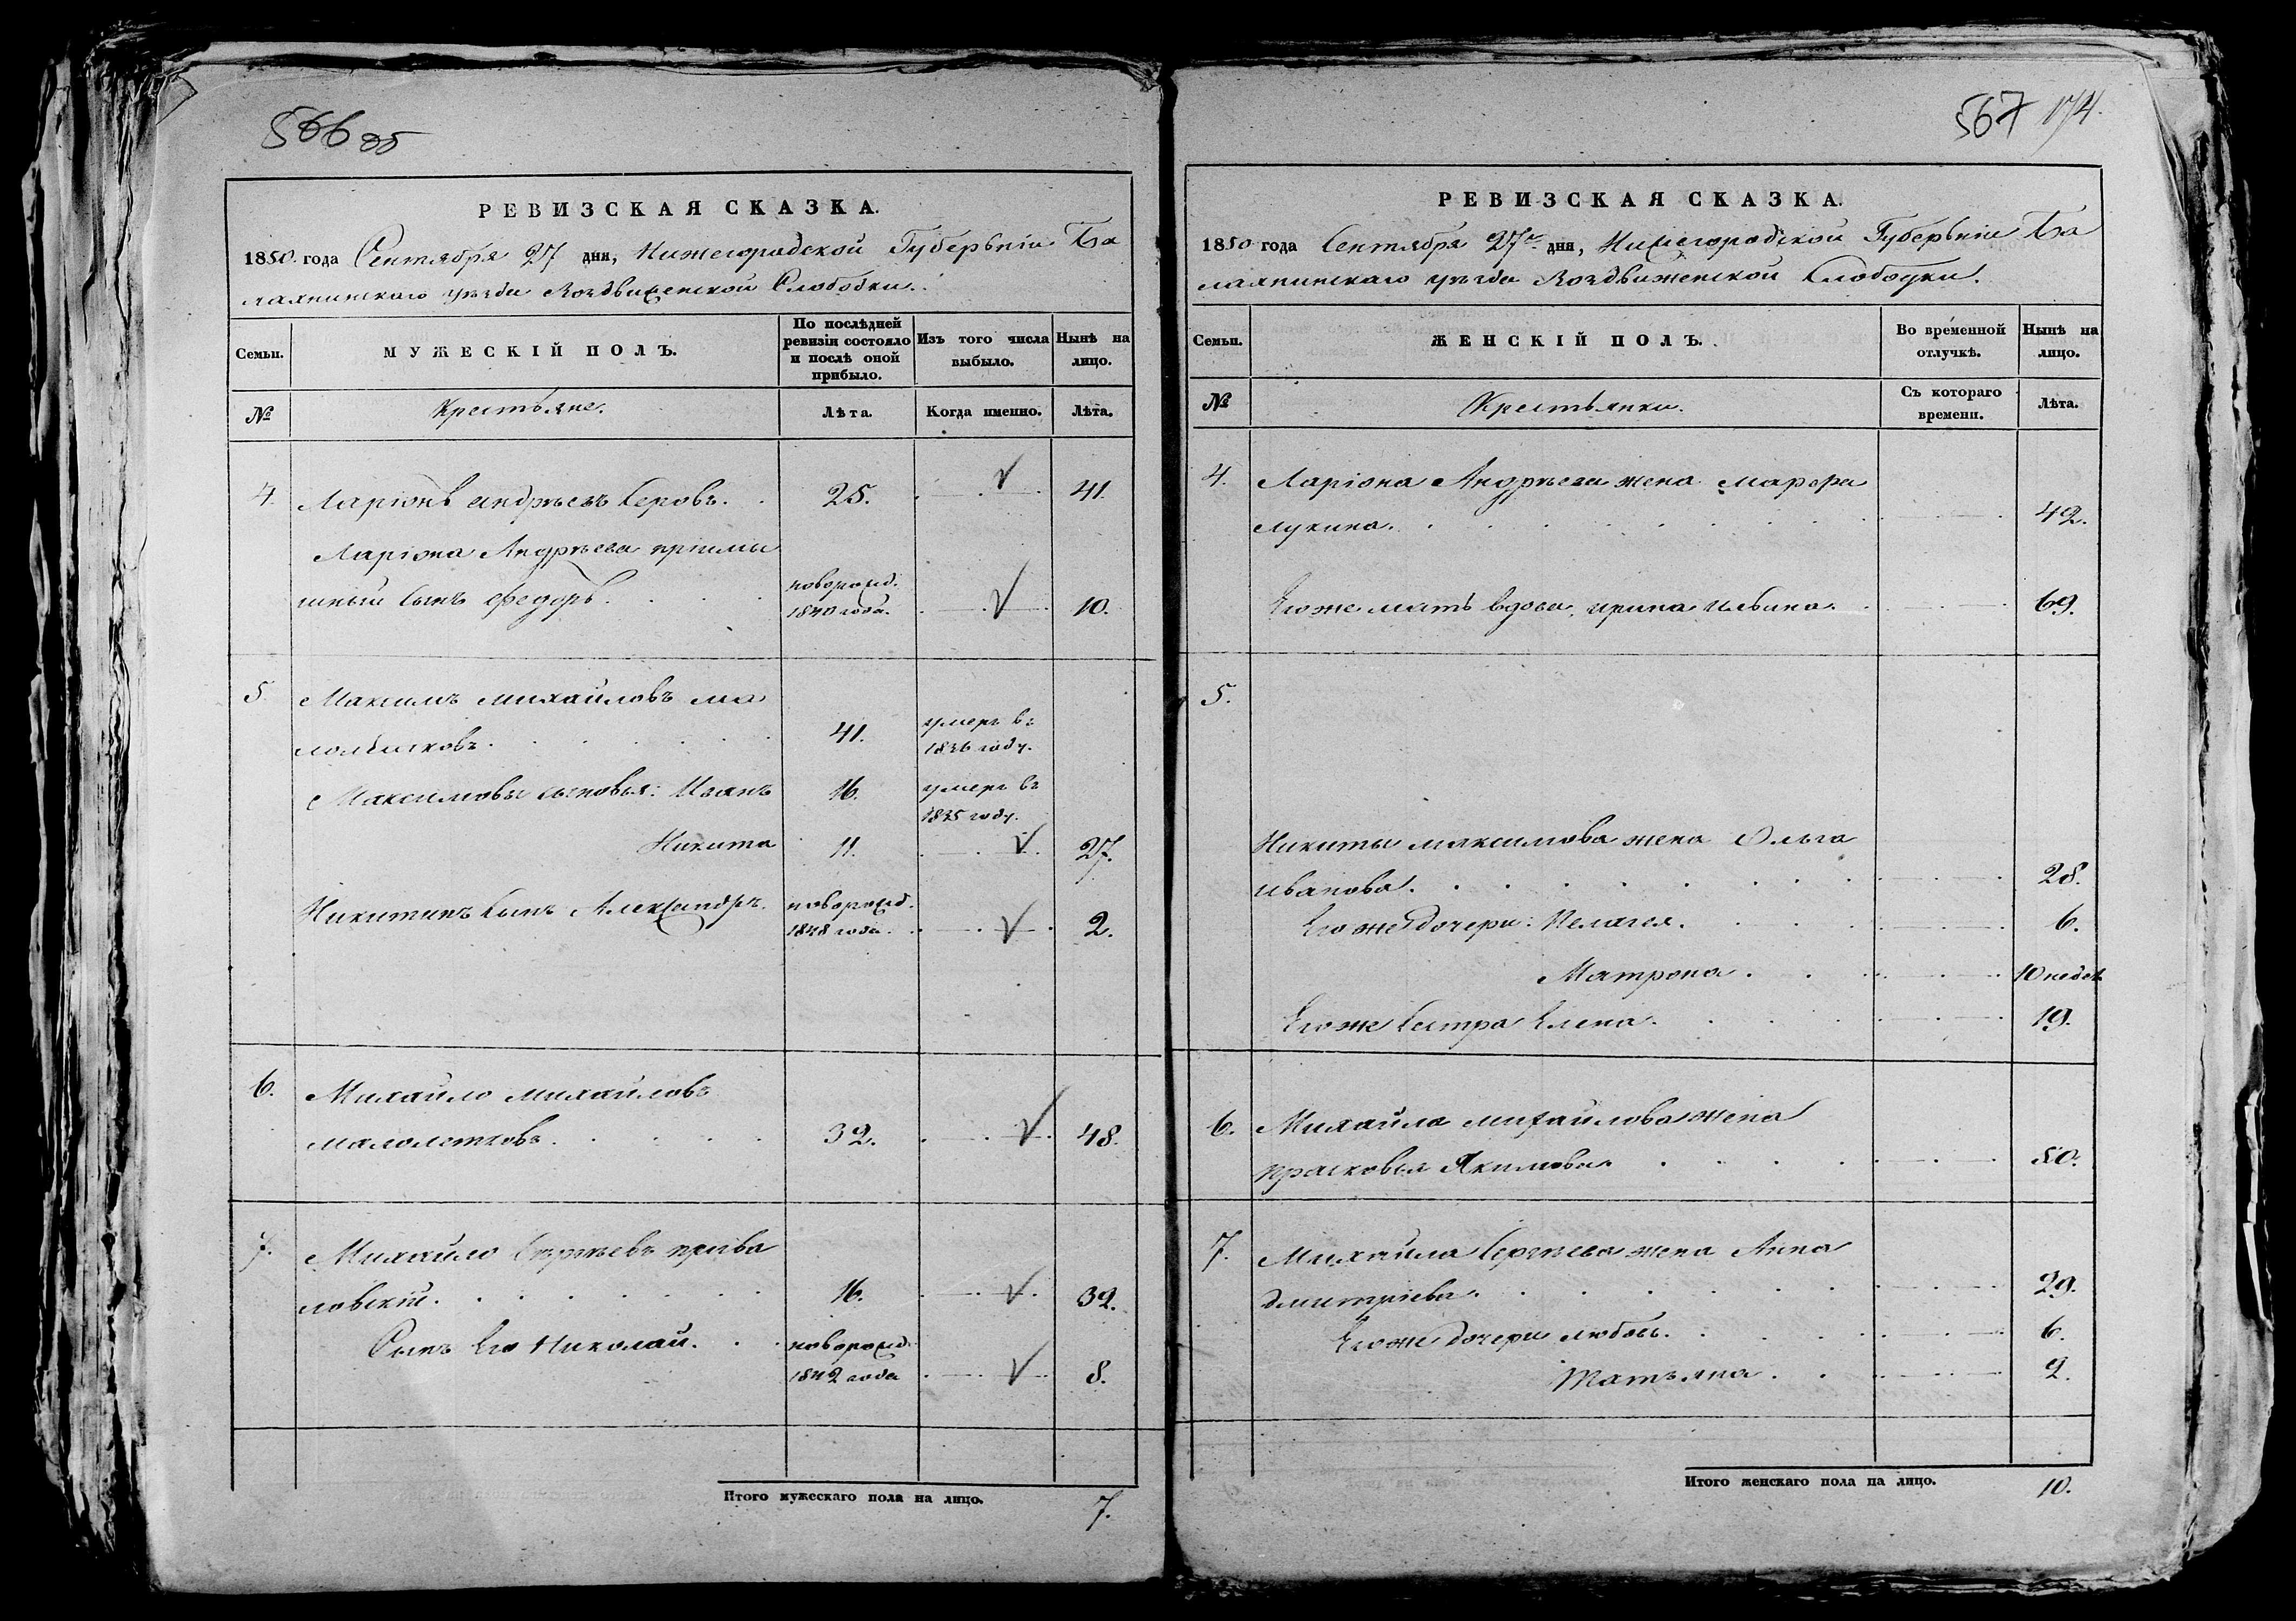 566 об
РЕВИЗСКАЯ СКАЗКА.
1850 года Сентября 27 дня, Нижегородской Губерьніи Ба
лахнинскаго уѣзда Воздвиженской Слободки.
Семьи.
МУЖЕСКІЙ ПОЛЪ.
По послѣдней
ревизіи состояло
и послѣ оной
прибыло.
Изъ того числа
выбыло.
Нынѣ на
лицо.
№
Крестьяне.
Лѣта.
Когда именно.
Лѣта.
4. Ларіонъ Андрѣевъ Серовъ. 25. 41.
Ларіона Андрѣева пріимы
шный сынъ Федоръ. новорожд. 1840 года. 10.
5. Максимъ Михайловъ ма
лолѣтковъ. 41. умеръ въ 1836 году.
Максимовы сыновья: Иванъ 16. умеръ въ 1835 году.
Никита 11. 27.
Никитинъ сынъ Александръ. новорожд. 1848 года. 2.
6. Михайло Михайловъ
малолетковъ. 32. 48.
7. Михайло Сергѣевъ прива
ловскій. 16. 32.
Сынъ Его Николай. новорожд. 1842 года 8.
Итого мужескаго пола на лицо. 7.
567 174.
РЕВИЗСКАЯ СКАЗКА.
1850 года Сентября 27го дня, Нижегородской Губерьніи Ба
лахнинскаго уѣзда Воздвиженской Слободки.
Семьи.
ЖЕНСКІЙ ПОЛЪ.
Во временной
отлучкѣ.
Нынѣ на
лицо.
№
Крестьянки.
Съ котораго
времени.
Лѣта.
4. Ларіона Андрѣева жена Марфа
Лукина. 42.
Его же мать вдова, Ирина Ильина. 69.
5.
Никиты Максимова жена Ольга
Иванова. 28.
Его же дочери: Пелагея. 6.
Матрона. 10 недѣл
Его же Сестра Елена. 19.
6. Михайла Михайлова жена
Прасковья Якимова. 50.
7. Михайла Сергѣева жена Анна
Дмитріева. 29.
Его же дочери Любовь. 6.
Татьяна. 2.
Итого женскаго пола на лицо. 10.